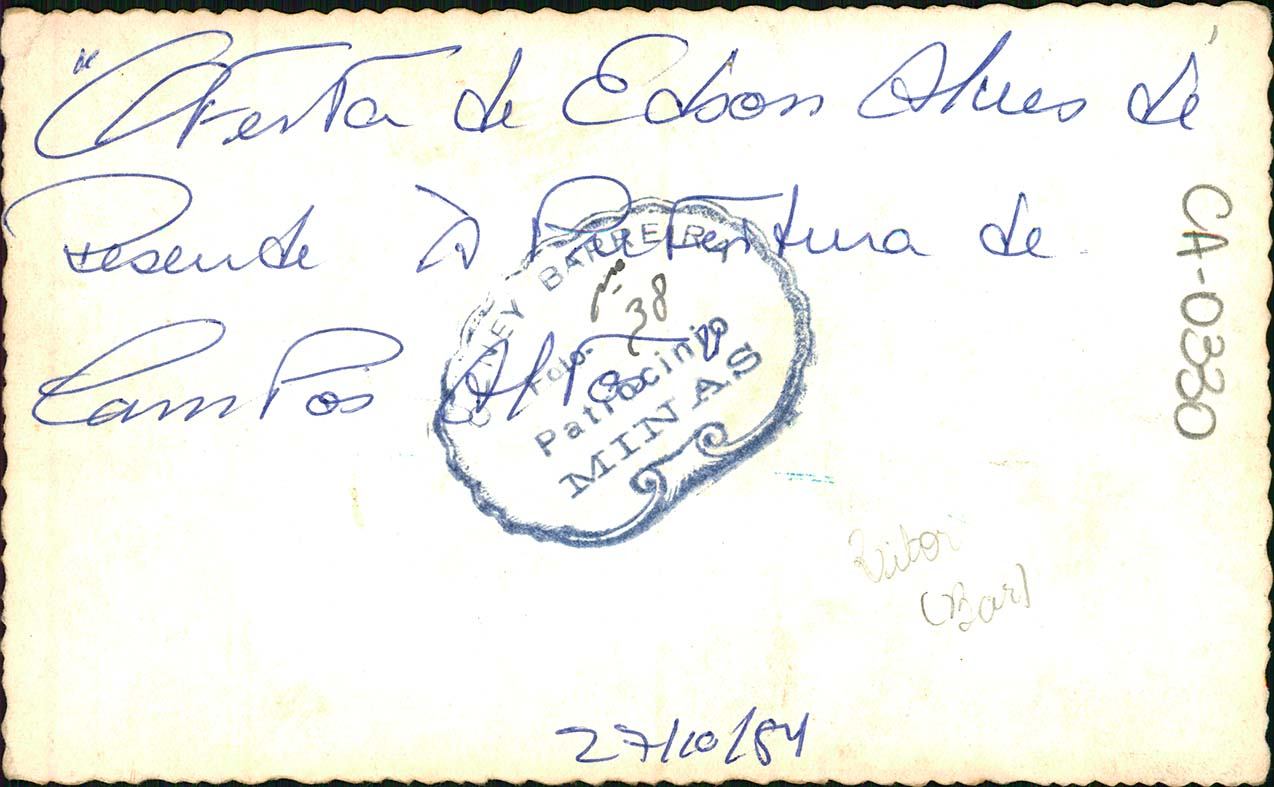 "Oferta de Edson Alves de
Resende à Prefeitura de
Campos Altos"
BARREIRA
Foto.
Patrocinio
MINAS
nº 38
CA-0330
(Bar)
27/10/84